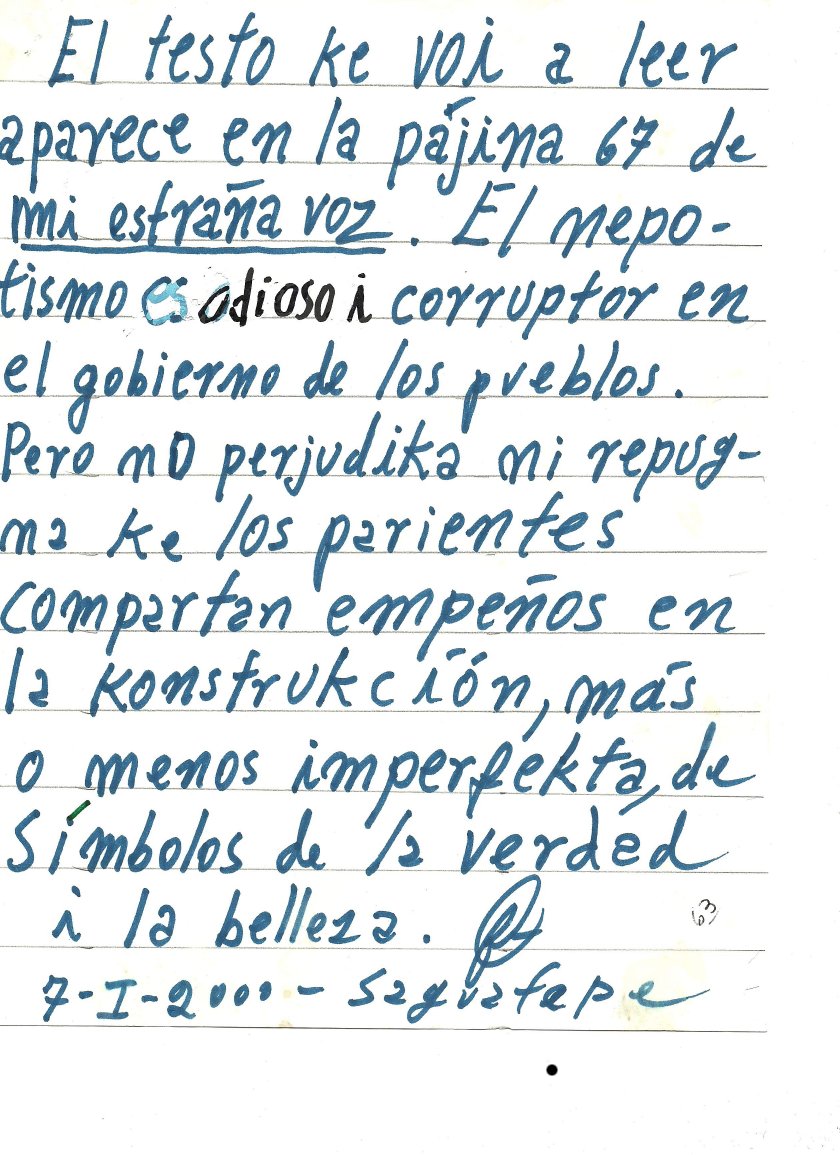 El testo ke voi a leer
aparece en la pájina 67 de
mi estraña voz. El nepo-
tismo es odioso i corruptor en
el gobierno de los pueblos.
Pero no perjudika ni repug-
na ke los parientes
compartan empeños en
la konstrukción, más
o menos imperfekta, de
símbolos de la verdád
i la belleza.
63
7-I-2000 - Saguatape